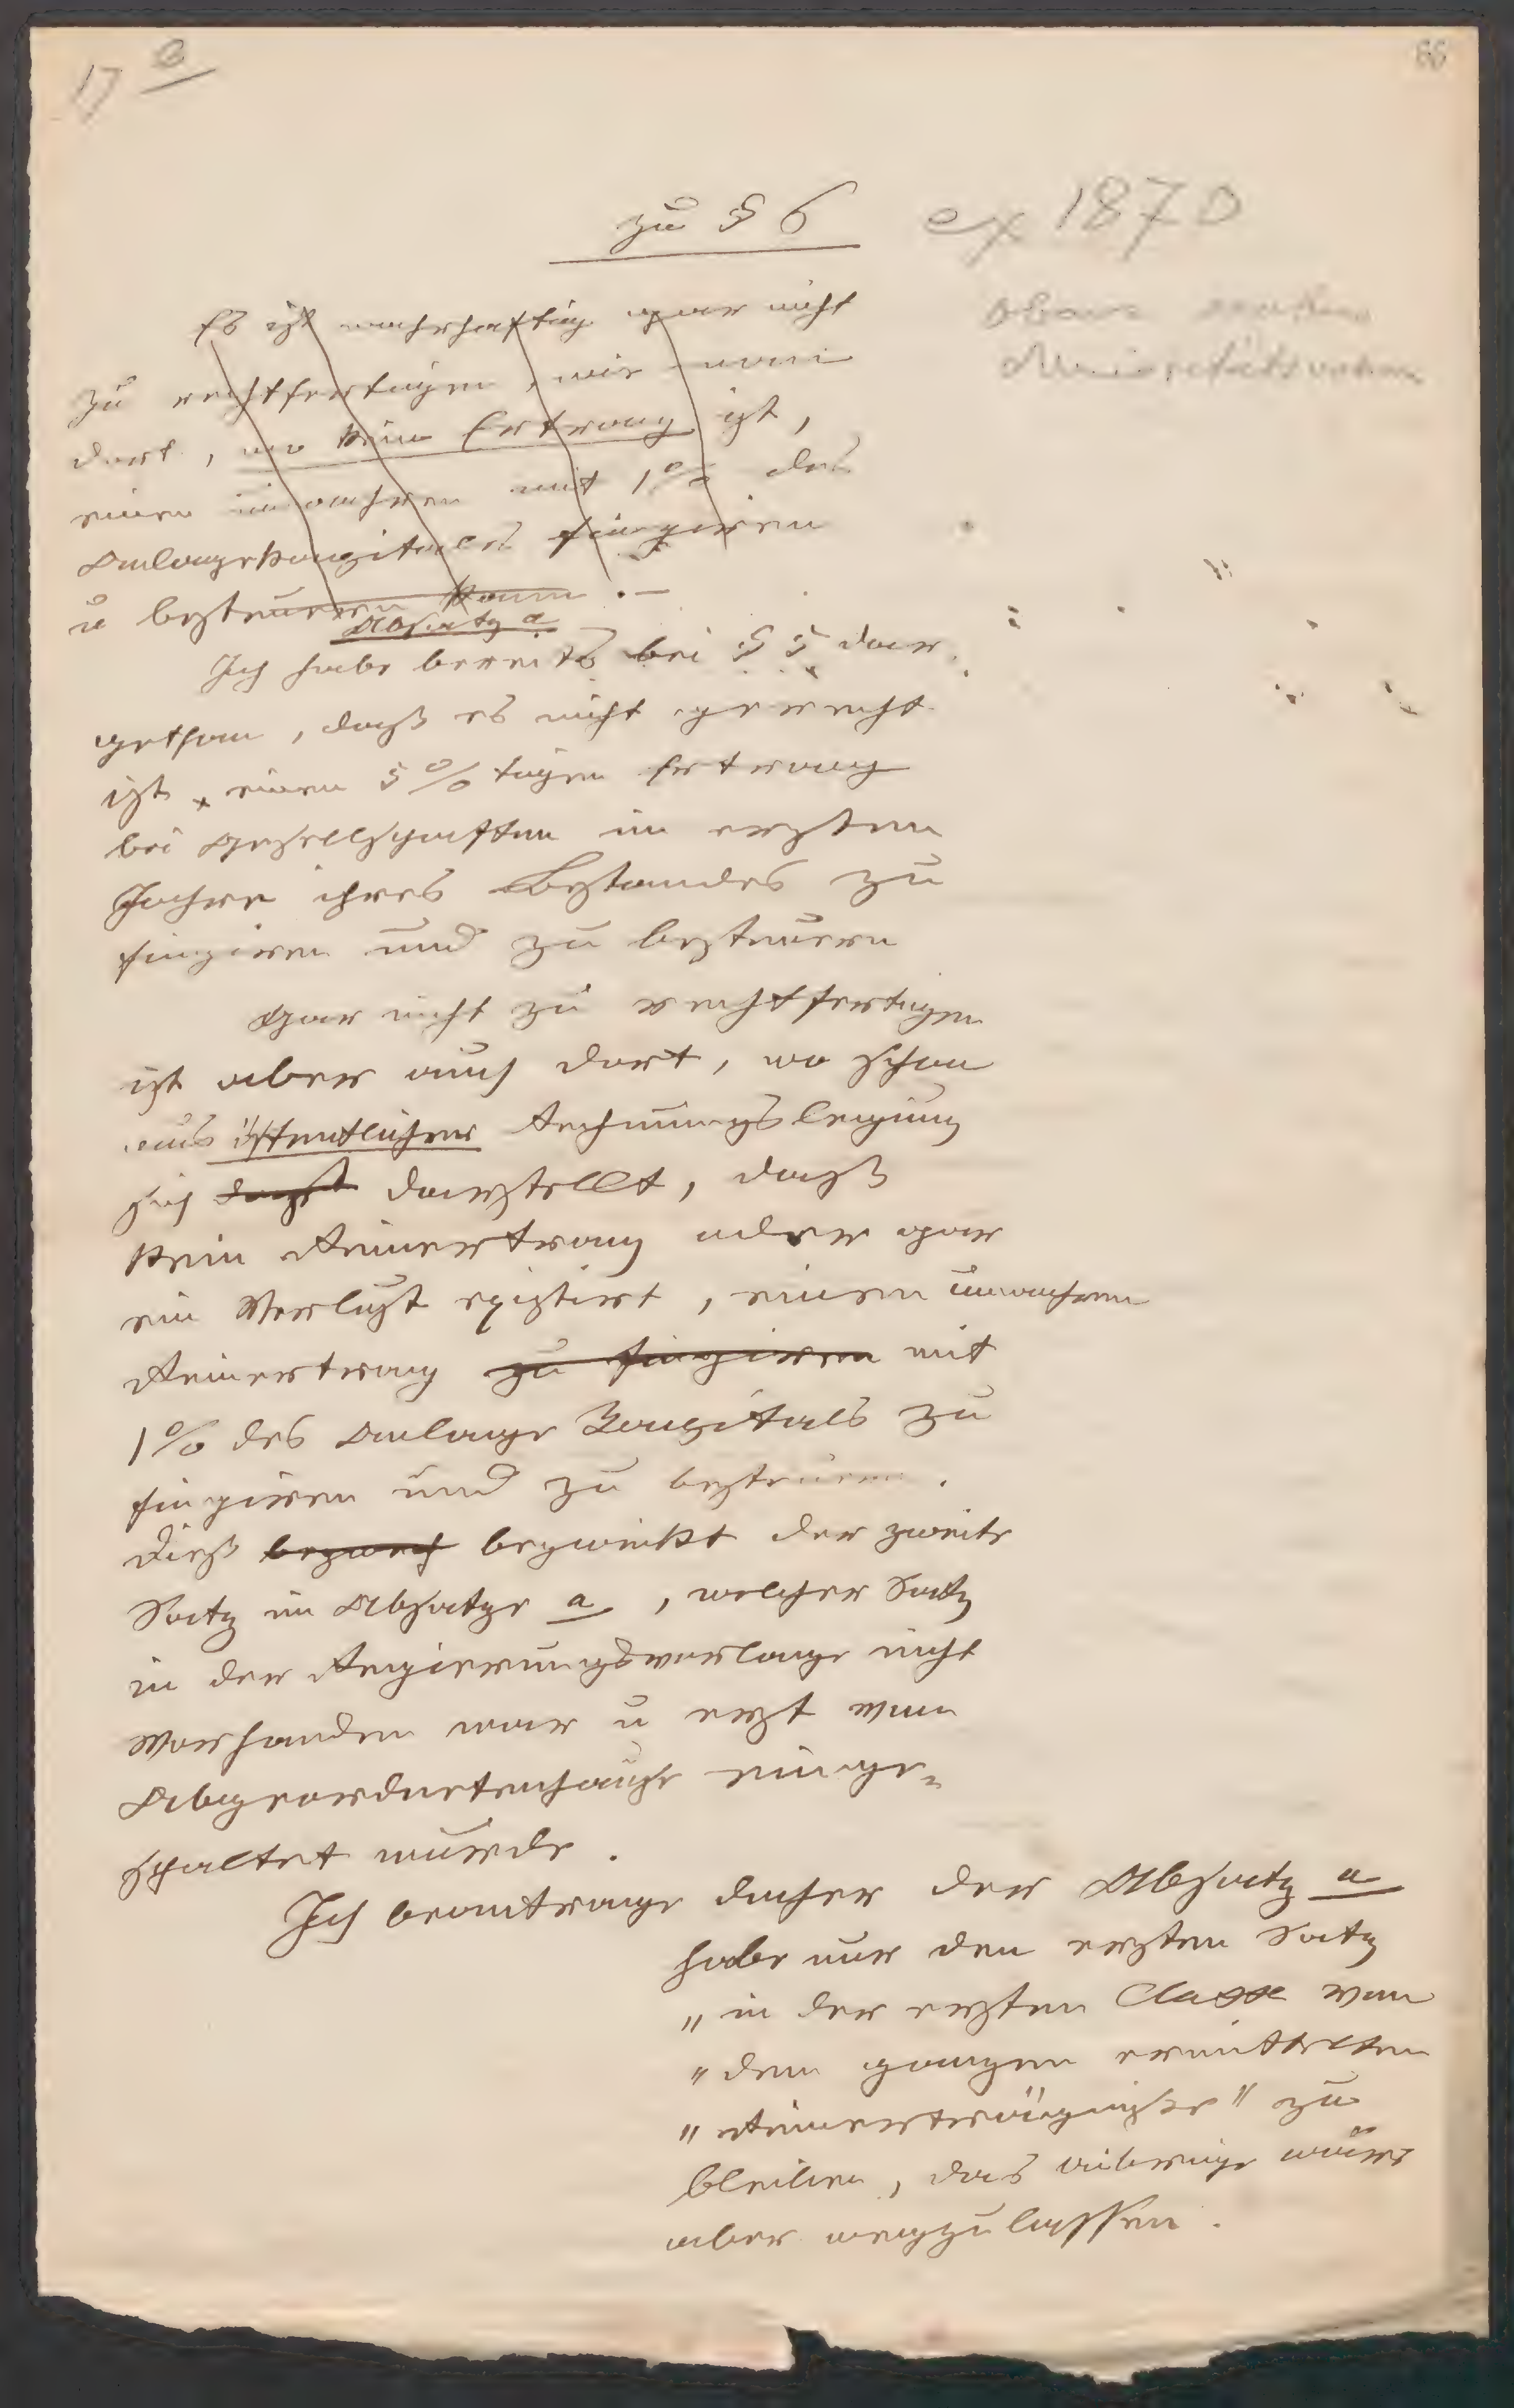 17 e
66
zu § 6
ex 1870
Es ist wahrhaftig gar nicht
zu rechtfertigen, wie man
dort, wo kein Ertrag ist,
einen unwahren mit 1% des
Anlagekapitales fingiren
u besteuern kann. –
Absatz a
Ich habe bereits bei § 5 dar
gethan, daß es nicht gerecht
ist, einen 5%tigen Ertrag
bei Gesellschaften im ersten
Jahre ihres Bestandes zu
fingiren und zu besteuern
Gar nicht zu rechtfertigen
ist aber auch dort, wo schon
aus öffentlicher Rechnungslegung
sich darstellt, daß
kein Reinertrag oder gar
ein Verlust existirt, einen unwahren
Reinertrag zu fingiren mit
1% des Anlage Kapitals zu
fingiren und zu besteuern.
Dieß bezweck bezweckt der zweite
Satz im Absatze a, welcher Satz
in der Regierungsvorlage nicht
vorhanden war u erst vom
Abgeordnetenhause einge-
schaltet wurde.
Ich beantrage daher der Absatz a
habe nur den ersten Satz
„in der ersten Classe von
„dem ganzen ermittelten
„Reinerträgnisse" zu
bleiben, das übrige wäre
aber wegzulassen.